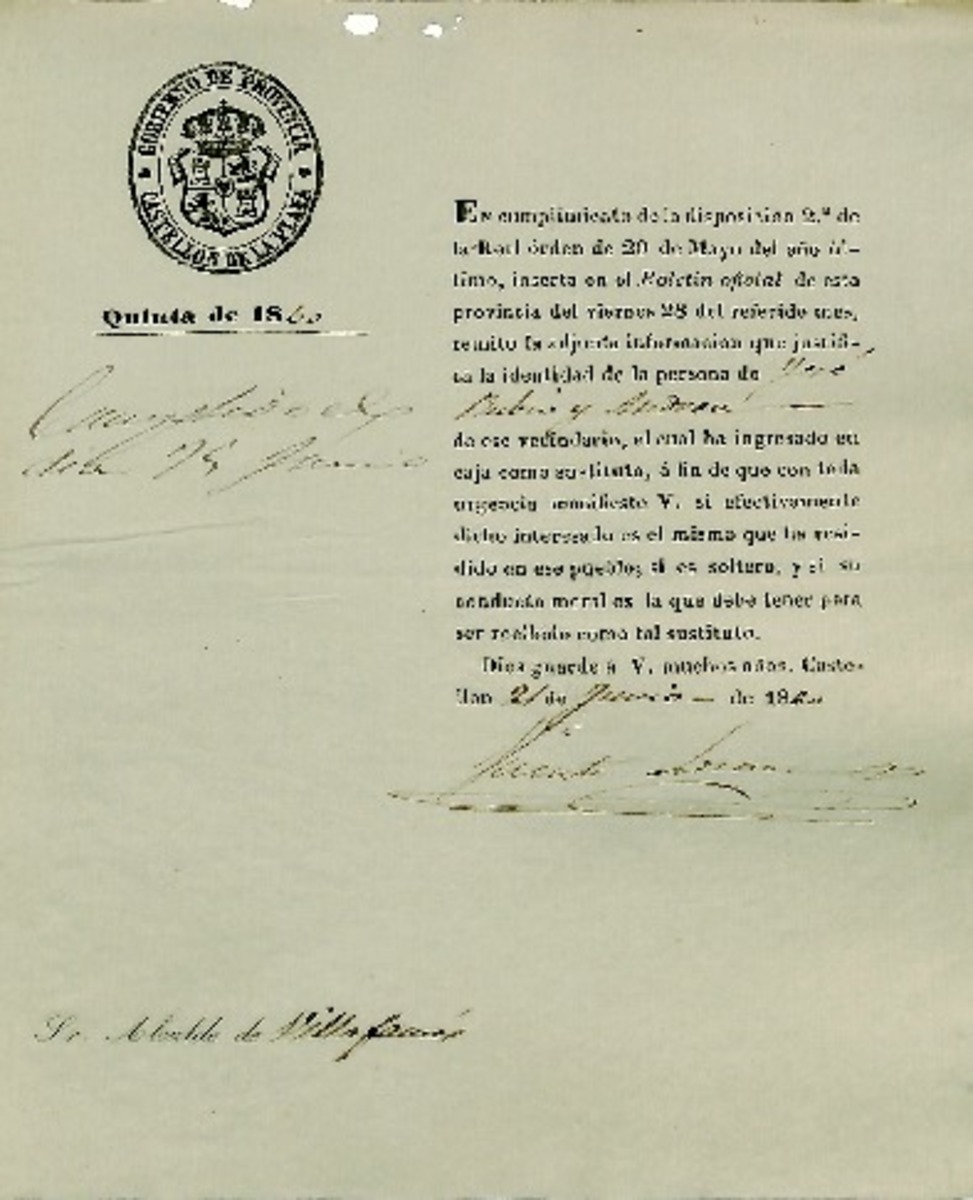 GOBIERNO DE PROVINCIA
CASTELLON DE LA PLANA
Quinta de 1860
En cumplimiento de la disposicion 2.ª de
la Real órden de 20 de Mayo del año úl-
timo, inserta en el Boletin oficial de esta
provincia del viernes 28 del referido mes,
remito la adjunta informacion que justifi-
ca la identidad de la persona de José
y
de ese vecindario, el cual ha ingresado en
caja como sustituto, á fin de que con toda
urgencia manifieste V. si efectivamente
dicho interesado es el mismo que ha resi-
dido en ese pueblo; si es soltero, y si su
conducta moral es la que debe tener para
ser recibido como tal sustituto.
Dios guarde á V. muchos años. Caste-
llon 21 de Junio de 1860
Vicente
Sr. Alcalde de Villafamés